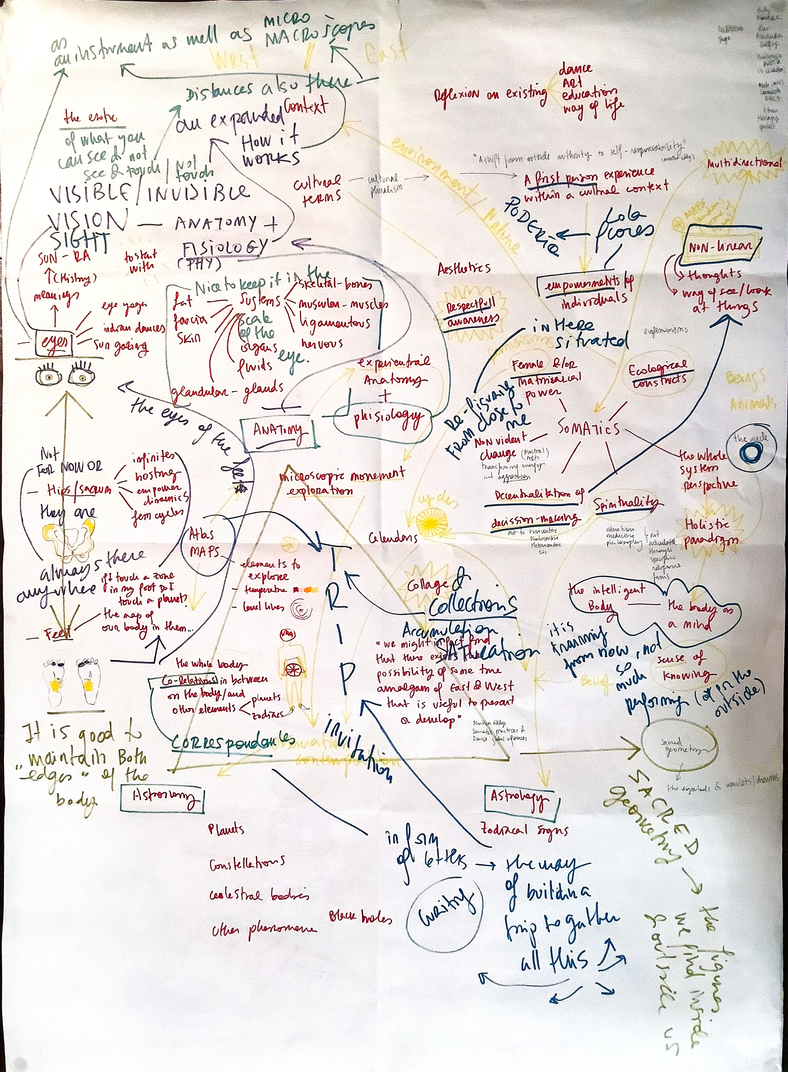 as
an instrument as well as MICRO
MACROscopes
West
East
Distances also there
the exotic
of what you
can see & not
see & touch / not
touch
an expanded context
How it
works
Reflexion on existing
dance
Art
education
way of life
"A shift from outside authority to self-responsibility"
Multidirectional
VISIBLE/INVISIBLE
VISION — ANATOMY +
SIGHT
FISIOLOGY
(PHY)
cultural
terms
cultural
pluralism
A first person experience
within a cultural context
environment / Nature
PODERÍA
Lola
Flores
NON-linear
thoughts
way of see/look
at things
SUN - RA
(History)
meanings
to start
with
eyes
eye yoga
indian dances
sun gazing
Nice to keep it in the
fat
fascia
Skin
systems
scale
of the
organs
eye.
fluids
skeletal-bones
muscular-muscles
ligamentous
nervous
glandular - glands
Aesthetics
Respectfull
awareness
empowerments of
individuals
in Here
situated
experiential
Anatomy
+
phisiology
ANATOMY
Female &/or
matriarcal
power
Ecological
constructs
Re-figuring
from close to
me
Non violent
change
SOMATICS
Beings
Animals
the whole
system
perspective
the eyes of the feet
microscopic movement
exploration
Decentralization of
decission-making
Spirituality
Holistic
paradigm
Not
FOR NOW OR
Hips/sacrum
they are
always there
anywhere
infinites
hosting
empower
dinamics
fem cycles
Atlas
MAPS
cycles
Calendars
elements to
explore
temperature
level lines
TRIP
If I touch a zone
in my foot do I
touch a planet?
the map of
our body in them...
Feet
Collage &
Collections
Accumulation
SATURation
"we might in fact find
that there exists the
possibility of some true
amalgam of East & West
that is useful to present
& develop"
the intelligent
Body
the body as
a mind
it is
knowing
from now, not
so
much
performing (of in the
outside)
Belief
sense of
knowing
the whole body
Co-relations in between
on the body/and
other elements
planets
zodiacs
CORRESPONDANCES
invitation
It is good to
maintain Both
"edges" of the
body
sacred
geometry
the symbols & amulets/charms
Astronomy
Astrology
Zodiacal signs
Planets
Constellations
celestial bodies
Other phenomena
Black holes
in form
of letters
writing
the way
of building
trip to gather
all this
SACRED
geometry
the figures
we find inside
& outside us